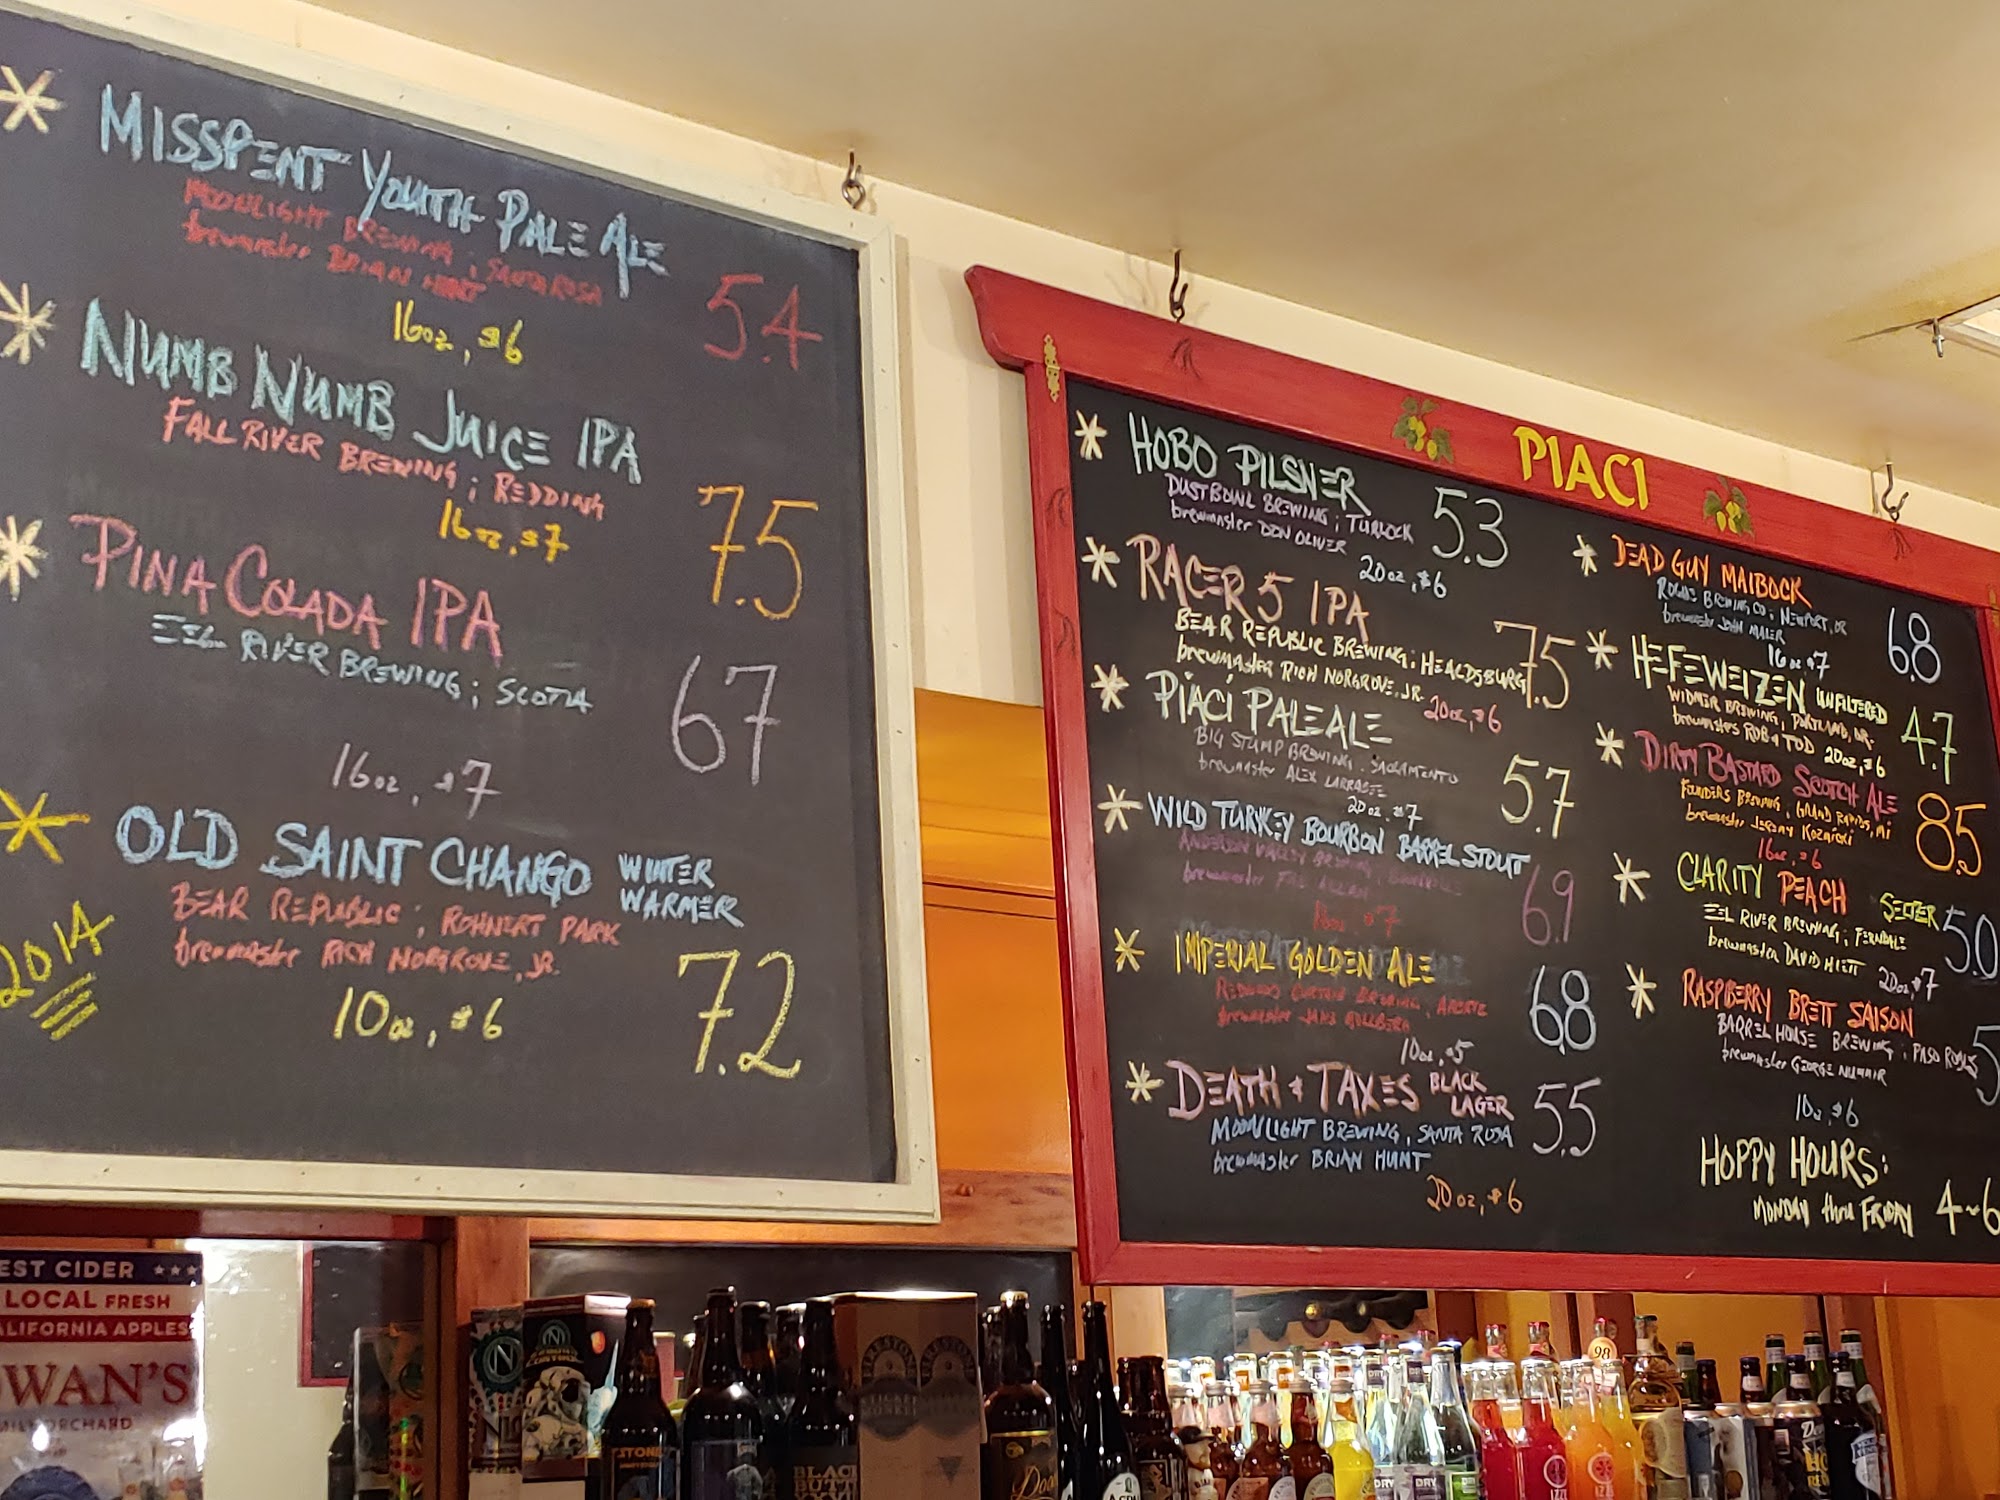 MISSPENT YOUTH PALE ALE
MOONLIGHT BREWING; SANTA ROSA
brewmaster BRIAN HUNT
16oz, $6
5.4
NUMB NUMB JUICE IPA
FALL RIVER BREWING; REDDING
16oz, $7
7.5
PINA COLADA IPA
EEL RIVER BREWING; SCOTIA
16oz, $7
67
OLD SAINT CHANGO WINTER WARMER
BEAR REPUBLIC; ROHNERT PARK
brewmaster RICH NORGROVE, JR.
10oz, $6
7.2
2014
PIACI
HOBO PILSNER
DUSTBOWL BREWING; TURLOCK
brewmaster DON OLIVER
20oz, $6
5.3
RACER 5 IPA
BEAR REPUBLIC BREWING; HEALDSBURG
brewmaster RICH NORGROVE, JR.
20oz, $6
7.5
PIACI PALE ALE
BIG STUMP BREWING, SACRAMENTO
brewmaster ALEX LARRABEE
20oz, $7
5.7
WILD TURKEY BOURBON BARREL STOUT
ANDERSON VALLEY BREWING, BOONVILLE
brewmaster FAL ALLEN
16oz, $7
6.9
IMPERIAL GOLDEN ALE
REDWOOD CURTAIN BREWING, ARCATA
brewmaster
10oz, $5
6.8
DEATH & TAXES BLACK LAGER
MOONLIGHT BREWING, SANTA ROSA
brewmaster BRIAN HUNT
20oz, $6
5.5
DEAD GUY MAIBOCK
ROGUE BREWING CO; NEWPORT, OR
brewmaster JOHN MAIER
16oz $7
6.8
HEFEWEIZEN UNFILTERED
WIDMER BREWING, PORTLAND, OR.
brewmasters ROB & TOD 20oz, $6
4.7
DIRTY BASTARD SCOTCH ALE
FOUNDERS BREWING, GRAND RAPIDS, MI
brewmaster JEREMY KOZMICKI
16oz, $6
8.5
CLARITY PEACH SELTZER
EEL RIVER BREWING; FERNDALE
brewmaster DAVID HIETT
20oz, $7
5.0
RASPBERRY BRETT SAISON
BARREL HOUSE BREWING; PASO ROBLES
brewmaster GEORGE
10oz, $6
5
HOPPY HOURS:
MONDAY thru FRIDAY 4~6
EST CIDER
LOCAL FRESH
ALIFORNIA APPLES
WAN'S
ORCHARD
STONE
BLACK
BUTTE
98
DRY
DRY
IZZE
IZZE